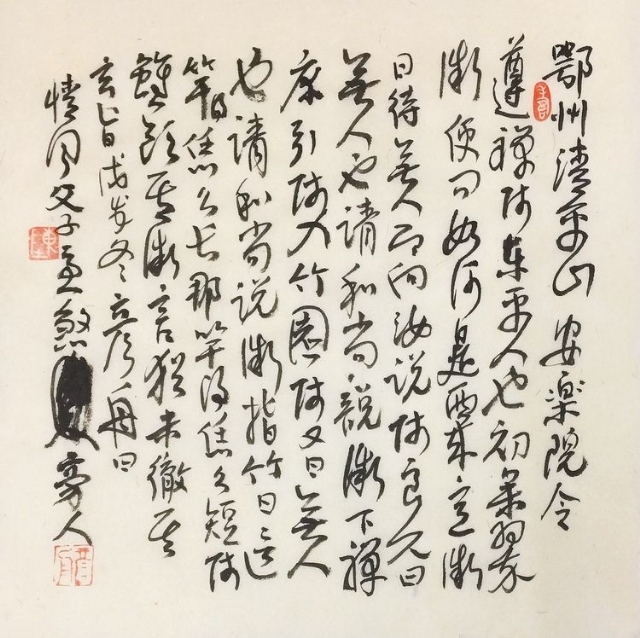 鄂州清平山安楽院令
遵禪師東平人也初參翠
微便问如何是西來意微
曰待無人即向汝說師良久曰
無人也請和尚說微下禪
床引師入竹園師又曰無人
也請和尚說微指竹曰這
竿得恁么長那竿得恁么短師
雖領其微言猶未徹其
玄旨戊戌冬彥舟曰
情同父子煞旁人